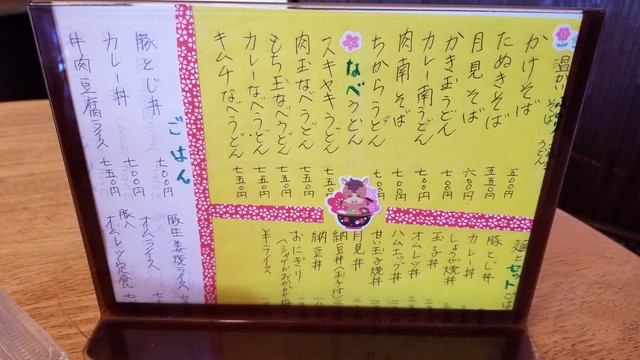 温かい そば うどん
かけそば 五〇〇円
たぬきそば 五五〇円
月見そば 六〇〇円
かき玉うどん 七〇〇円
カレー南うどん 七〇〇円
肉南そば 七〇〇円
ちからうどん 七〇〇円
なべ
スキヤキうどん 七五〇
肉玉なべうどん 七五〇円
もち玉なべうどん 七五〇円
カレーなべうどん 七五〇円
キムチなべうどん 七五〇円
麺とセット
豚とじ丼
カレー丼
しょうが焼丼
玉子丼
オムレツ丼
ハムエッグ丼
甘い玉子焼丼
月見丼
納豆丼(玉子付)
納豆丼
おにぎり
半ライス
ごはん
豚とじ丼 七〇〇円
カレー丼 七〇〇円
牛肉豆腐ライス 七五〇円
豚生姜焼ライス
オムライス
豚入オムレツ定食